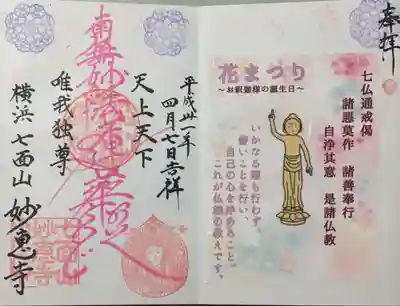 奉拝
七仏通戒偈
諸悪莫作 諸善奉行
自浄其意 是諸仏教
花まつり
～お釈迦様の誕生日～
いかなる悪も行わず、
善いことを行い、
自己の心を浄めること。
これが仏様の教えです。
平成卅一年
四月七日吉祥
天上天下
南無妙法蓮華経
唯我独尊
横浜 七面山 妙恵寺